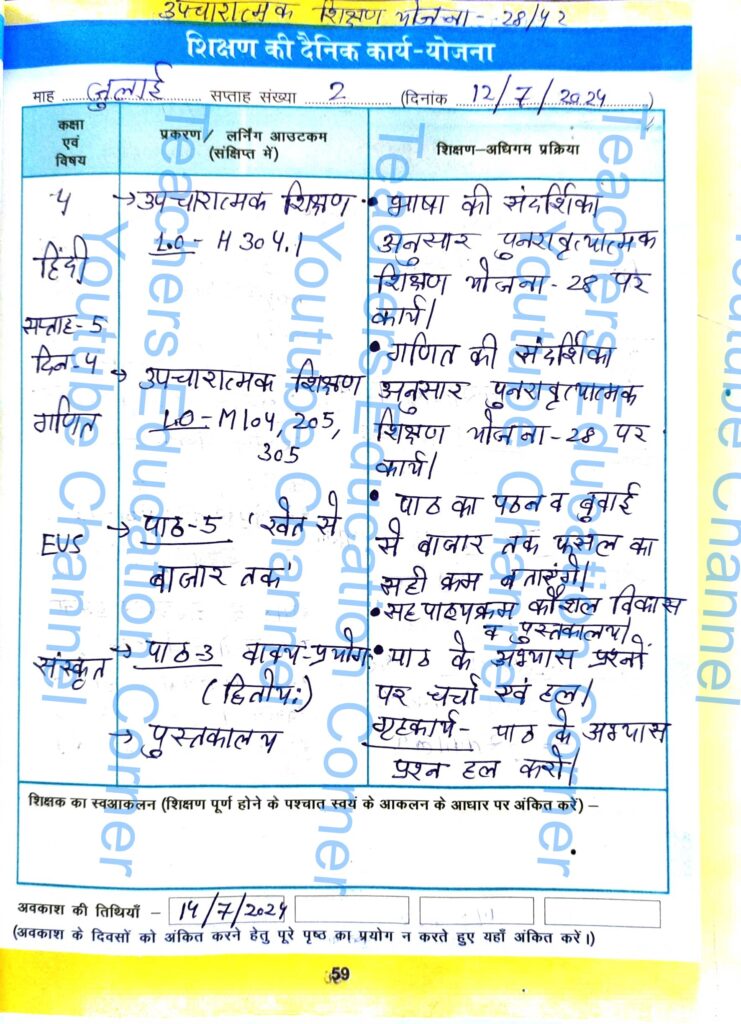 उपचारात्मक शिक्षण योजना- 28/42
शिक्षण की दैनिक कार्य-योजना
माह जुलाई सप्ताह संख्या 2 (दिनांक 12/7/2024)
कक्षा एवं विषय
प्रकरण/ लर्निंग आउटकम (संक्षिप्त में)
शिक्षण-अधिगम प्रक्रिया
हिंदी
सप्ताह-5
दिन-4
→ उपचारात्मक शिक्षण
L.O- H 304.1
• भाषा की संदर्शिका
अनुसार पुनरावृत्यात्मक
शिक्षण योजना-28 पर
कार्य।
गणित
→ उपचारात्मक शिक्षण
L.O- M104, 205,
305
• गणित की संदर्शिका
अनुसार पुनरावृत्यात्मक
शिक्षण योजना-28 पर
कार्य।
EVS
→ पाठ-5 'खेत से
बाजार तक'
• पाठ का पठन व बुवाई
से बाजार तक फसल का
सही क्रम बताएंगे।
• सहपाठ्यक्रम कौशल विकास
व पुस्तकालय।
संस्कृत
→ पाठ-3 वाक्य-प्रयोगः
(द्वितीयः)
→ पुस्तकालय
• पाठ के अभ्यास प्रश्नों
पर चर्चा एवं हल।
गृहकार्य- पाठ के अभ्यास
प्रश्न हल करो।
शिक्षक का स्वआकलन (शिक्षण पूर्ण होने के पश्चात स्वयं के आकलन के आधार पर अंकित करें) –
अवकाश की तिथियाँ – 14/7/2024
(अवकाश के दिवसों को अंकित करने हेतु पूरे पृष्ठ का प्रयोग न करते हुए यहाँ अंकित करें।)
59
Teachers Education Corner
Youtube Channel
Teachers Education Corner
Youtube Channel
Teachers Education Corner
Youtube Channel